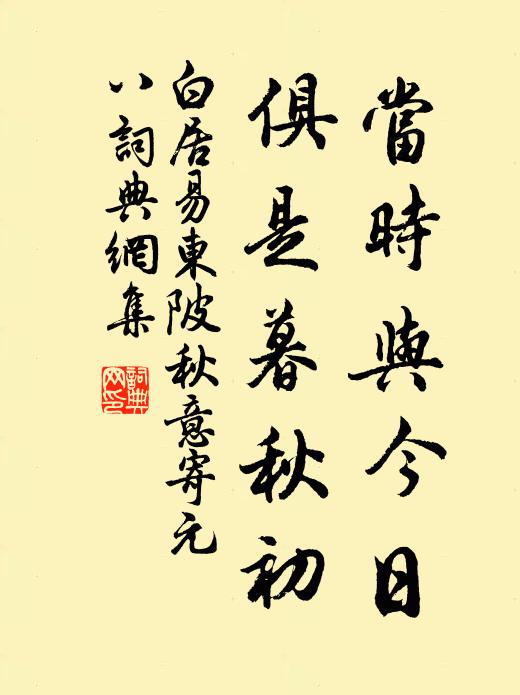 當時與今日
俱是暮秋初
白居易東陂秋意寄元
八詞典網集
詞典
网印